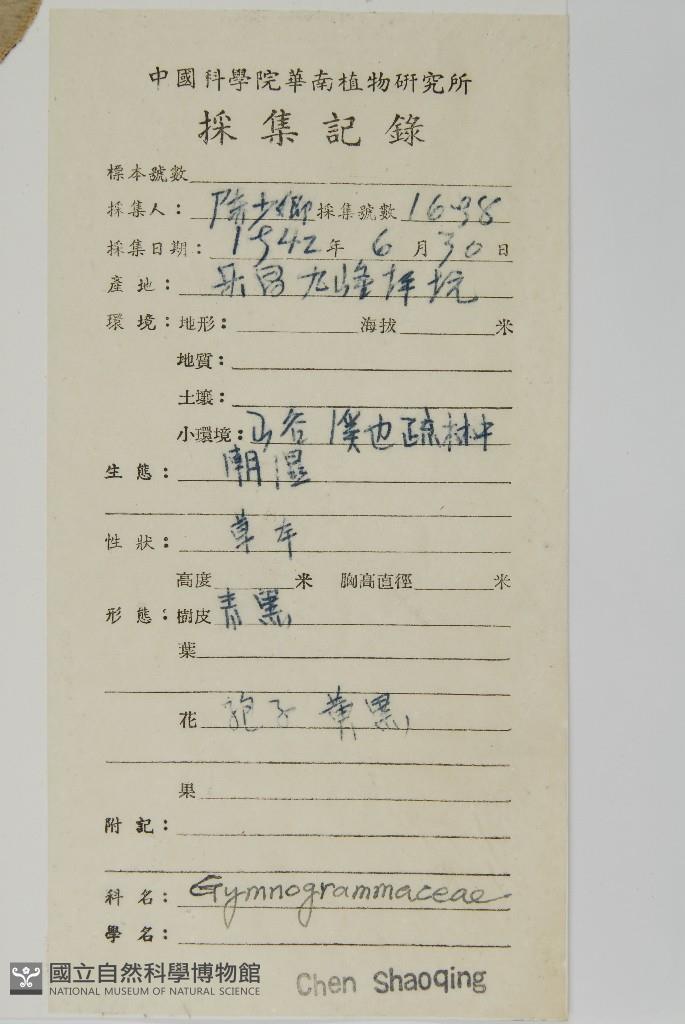 中國科學院華南植物研究所
採集記錄
標本號數
採集人： 陈少卿 採集號數 1698
採集日期： 1942 年 6 月 30 日
產地： 乐昌九峰坪坑
環境：地形： 海拔 米
地質：
土壤：
小環境：山谷 疏林中
生態： 潮湿
性狀： 草本
高度 米 胸高直徑 米
形態：樹皮 青黑
葉
花 孢子 黑
果
附記：
科名： Gymnogrammaceae
學名：
國立自然科學博物館
NATIONAL MUSEUM OF NATURAL SCIENCE
Chen Shaoqing